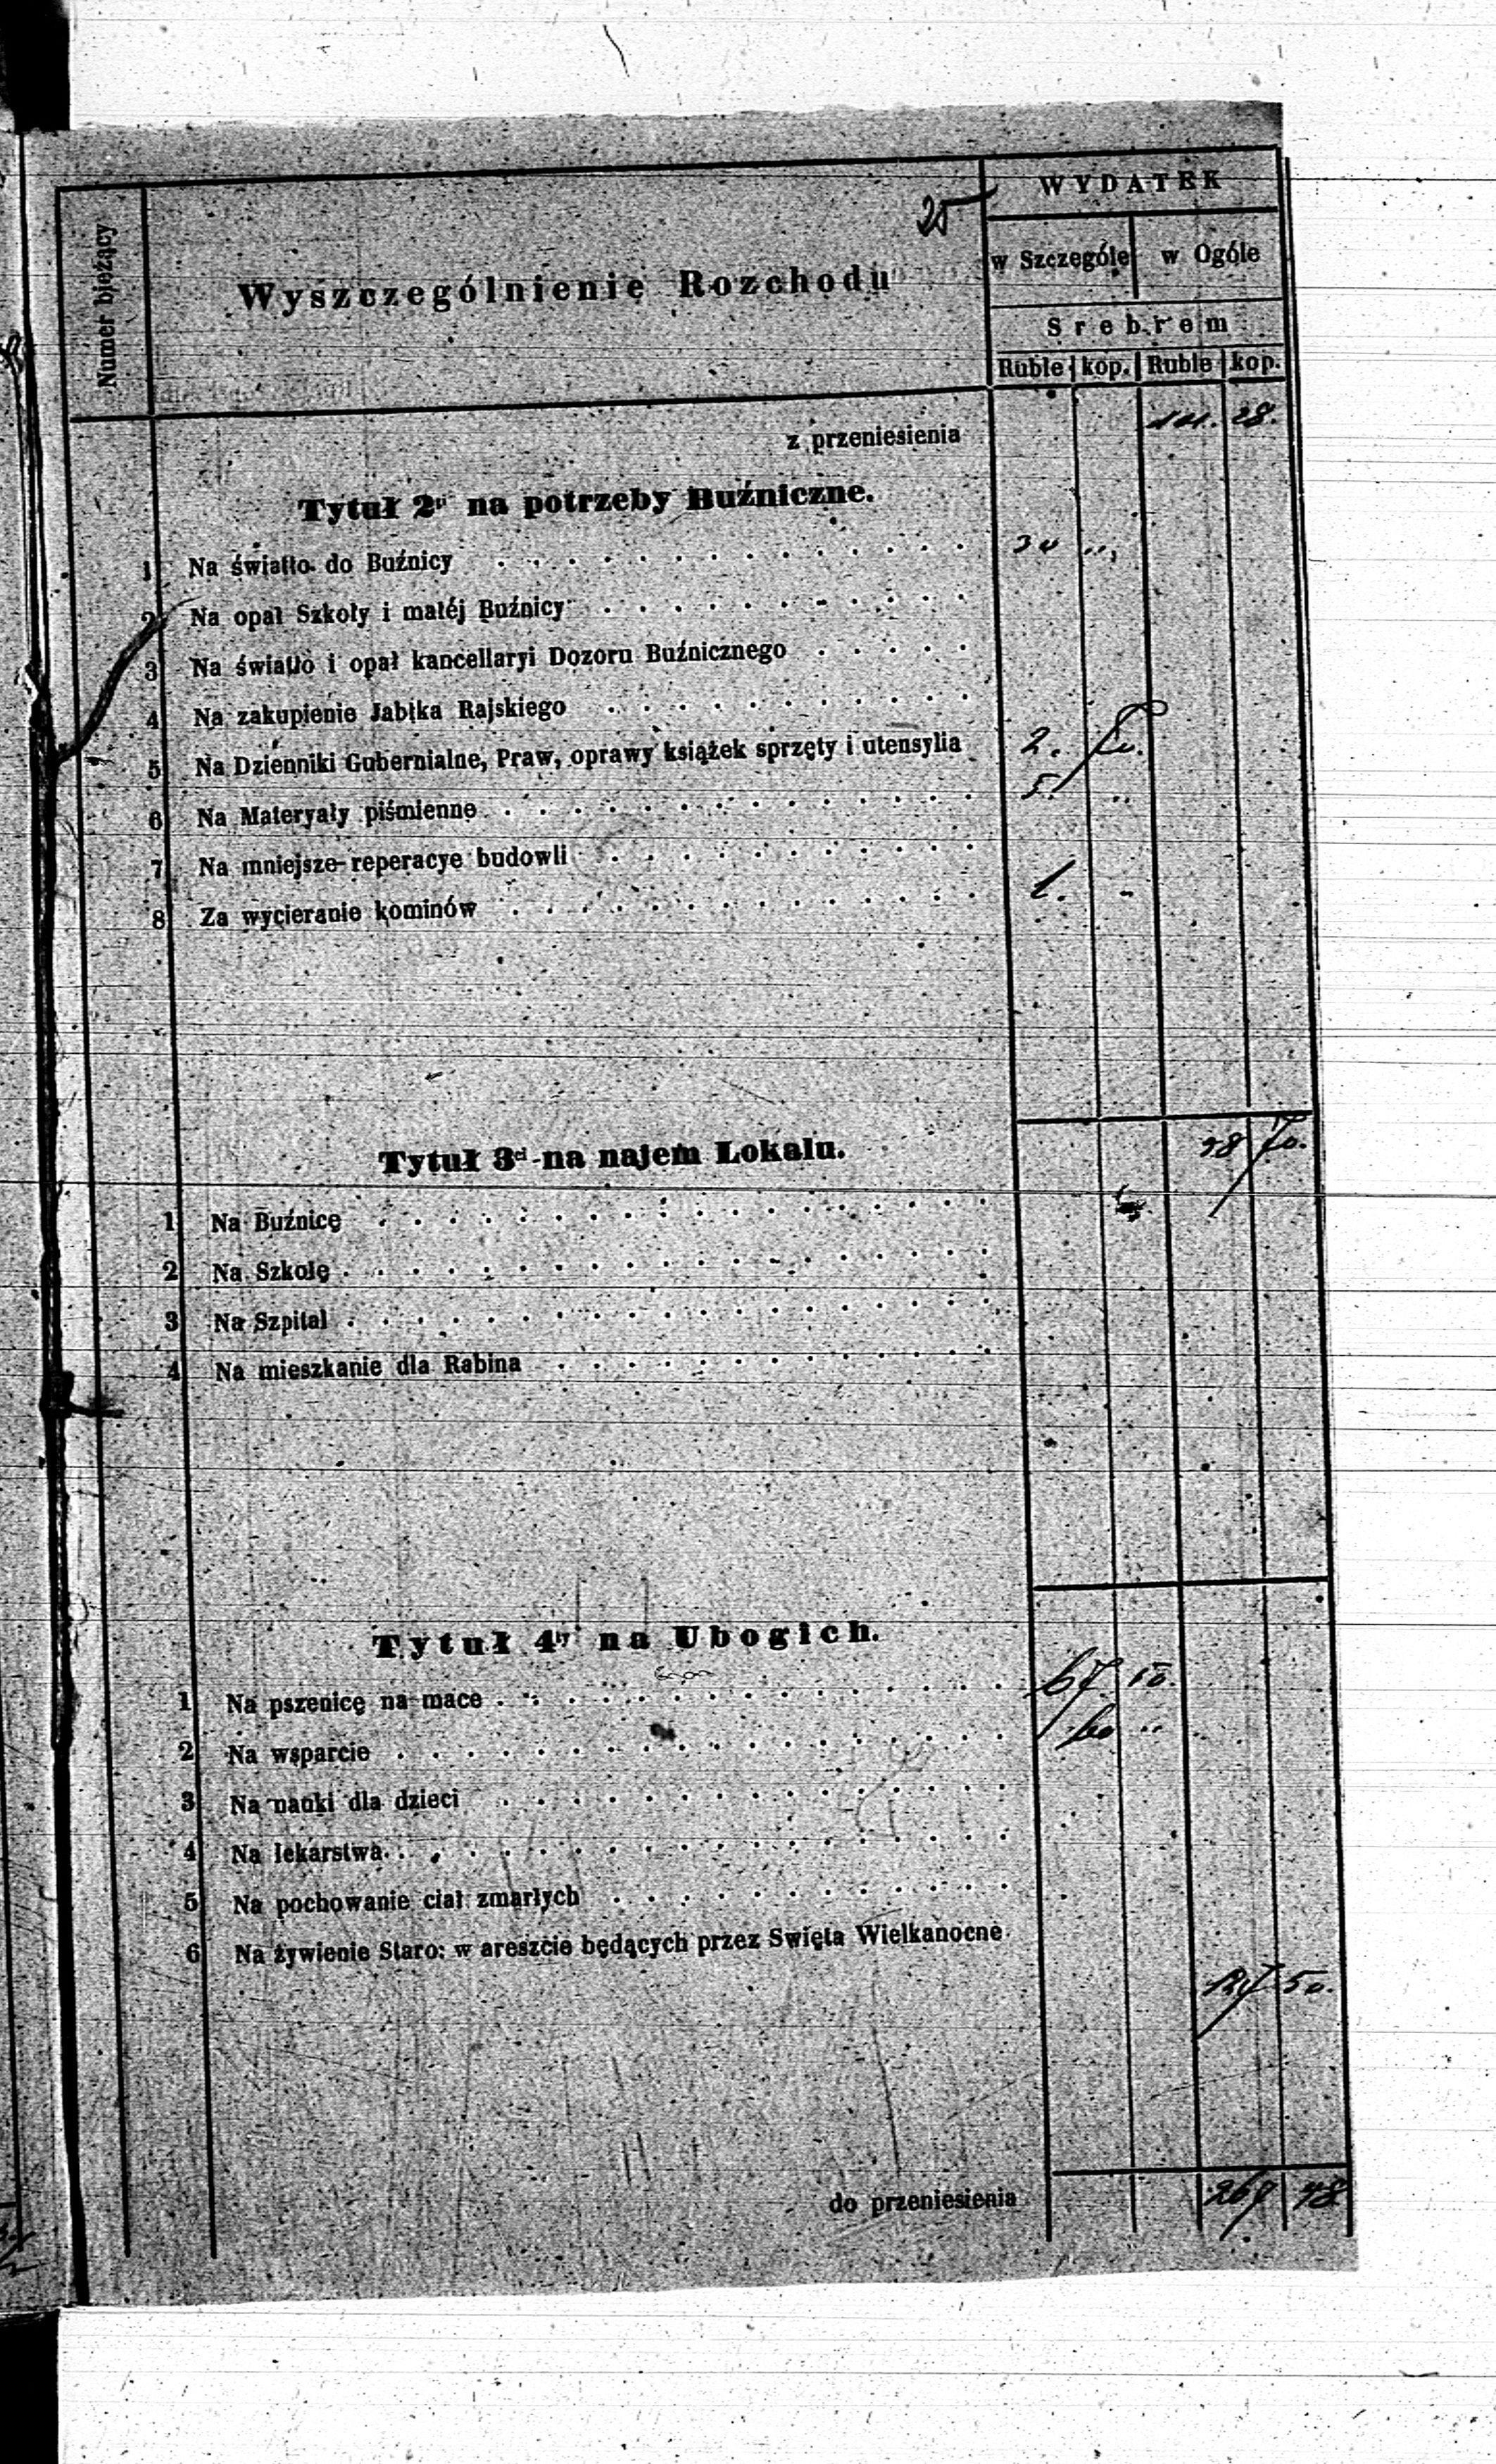 25
Numer bieżący
Wyszczególnienie Rozchodu
WYDATEK
w Szczególe w Ogóle
Srebrem
Ruble kop. Ruble kop.
z przeniesienia 101. 28.
Tytuł 2gi na potrzeby Buźniczne.
1 Na światło do Buźnicy 30 „
2 Na opał Szkoły i małéj Buźnicy
3 Na światło i opał kancellaryi Dozoru Buźnicznego
4 Na zakupienie Jabłka Rajskiego
5 Na Dzienniki Gubernialne, Praw, oprawy książek sprzęty i utensylia 2. 70.
6 Na Materyały piśmienne 5. „
7 Na mniejsze reperacye budowli
8 Za wycieranie kominów 1. -
38 70.
Tytuł 3ci na najem Lokalu.
1 Na Buźnicę
2 Na Szkołę
3 Na Szpital
4 Na mieszkanie dla Rabina
Tytuł 4ty na Ubogich.
1 Na pszenicę na mace 67. 50.
2 Na wsparcie 60 „
3 Na nauki dla dzieci
4 Na lekarstwa
5 Na pochowanie ciał zmarłych
6 Na żywienie Staro: w areszcie będących przez Swięta Wielkanocne
127 50.
do przeniesienia 267 48